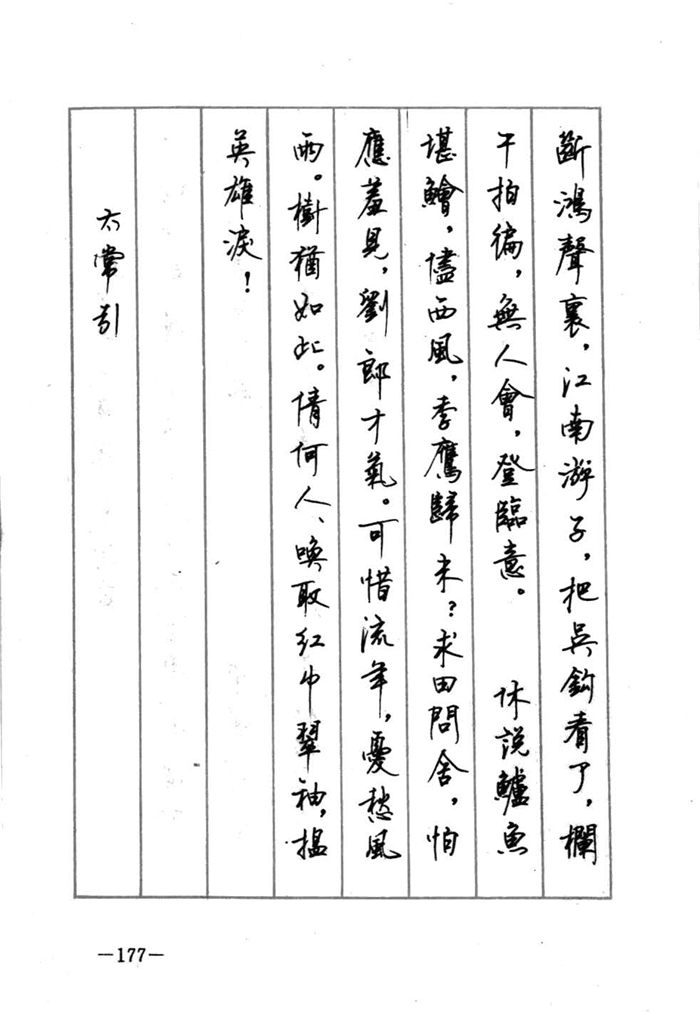 斷鴻聲裏，江南游子，把吳鈎看了，欄
干拍徧，無人會，登臨意。　休說鱸魚
堪鱠，儘西風，季鷹歸未？求田問舍，怕
應羞見，劉郎才氣。可惜流年，憂愁風
雨。樹猶如此。倩何人、喚取紅巾翠袖，揾
英雄淚！
太常引
—177—